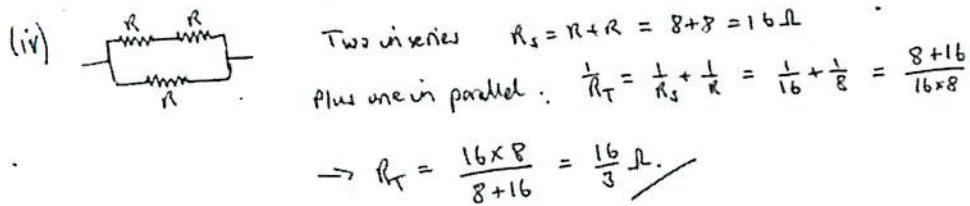 (iv) R R R Two in series R_S = R + R = 8 + 8 = 16 Ω
Plus one in parallel. 1/R_T = 1/R_S + 1/R = 1/16 + 1/8 = (8+16)/(16×8)
→ R_T = (16×8)/(8+16) = 16/3 Ω.